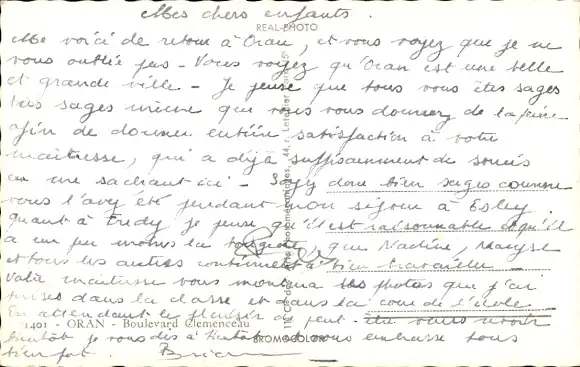 Mes chers enfants.
REAL-PHOTO
Me voici de retour à Oran, et vous voyez que je ne
vous oublie pas - Vous voyez qu'Oran est une belle
et grande ville - Je pense que tous vous êtes sages
très sages même que vous vous donnez de la peine
afin de donner entière satisfaction à votre
maîtresse, qui a déjà suffisamment de soucis
en me sachant ici - Soyez donc bien sages comme
vous l'avez été pendant mon séjour à
Quant à Fredy je pense qu'il est raisonnable et qu'il
a un peu moins la bougeotte, que Nadine, Maryse
et tous les autres continuent à bien travailler -
Votre maîtresse vous montrera les photos que j'ai
prises dans la classe et dans la cour de l'école
En attendant le plaisir de peut-être vous revoir
1401 - ORAN - Boulevard Clemenceau
BROMOCOLOR
bientôt je vous dis à bientôt vous embrasse tous
bien fort.